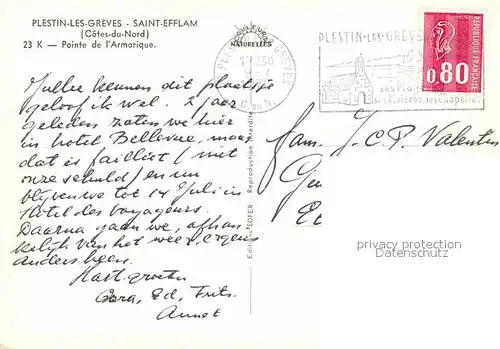 PLESTIN-LES-GRÈVES - SAINT-EFFLAM
(Côtes-du-Nord)
23 K — Pointe de l'Armorique.
COULEURS
NATURELLES
PLESTIN-LES-GRÈVES
17 H 30
C. DU N.
PLESTIN-LES-GRÈVES
ses Plages
ses Rivières, ses Chapelles
0,80
REPUBLIQUE FRANÇAISE
Jullie kennen dit plaatsje
geloof ik wel. 2 jaar
geleden zaten we hier
in hotel Bellevue, maar
dat is failliet (niet
onze schuld) en nu
blijven we tot 14 Juli in
Hotel des Voyageurs.
Daarna gaan we, afhan
kelijk van het weer, ergens
anders heen.
Hart. groeten
Cora, Ed, Frits,
Annet
Fam. J. C. P. Valentin
Reproduction Interdite
privacy protection
Datenschutz